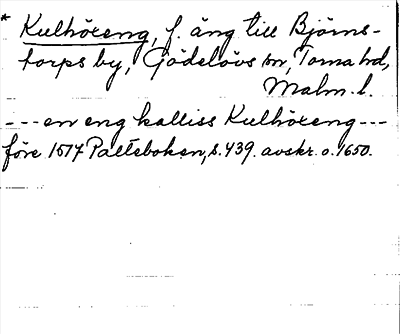 * Kulhöreng, f. äng till Björns-
torps by, Gödelövs sn, Torna hd,
Malm. l.
--- en eng kalliss Kulhöreng ---
före 1517 Palteboken, s. 439. avskr. o. 1650.